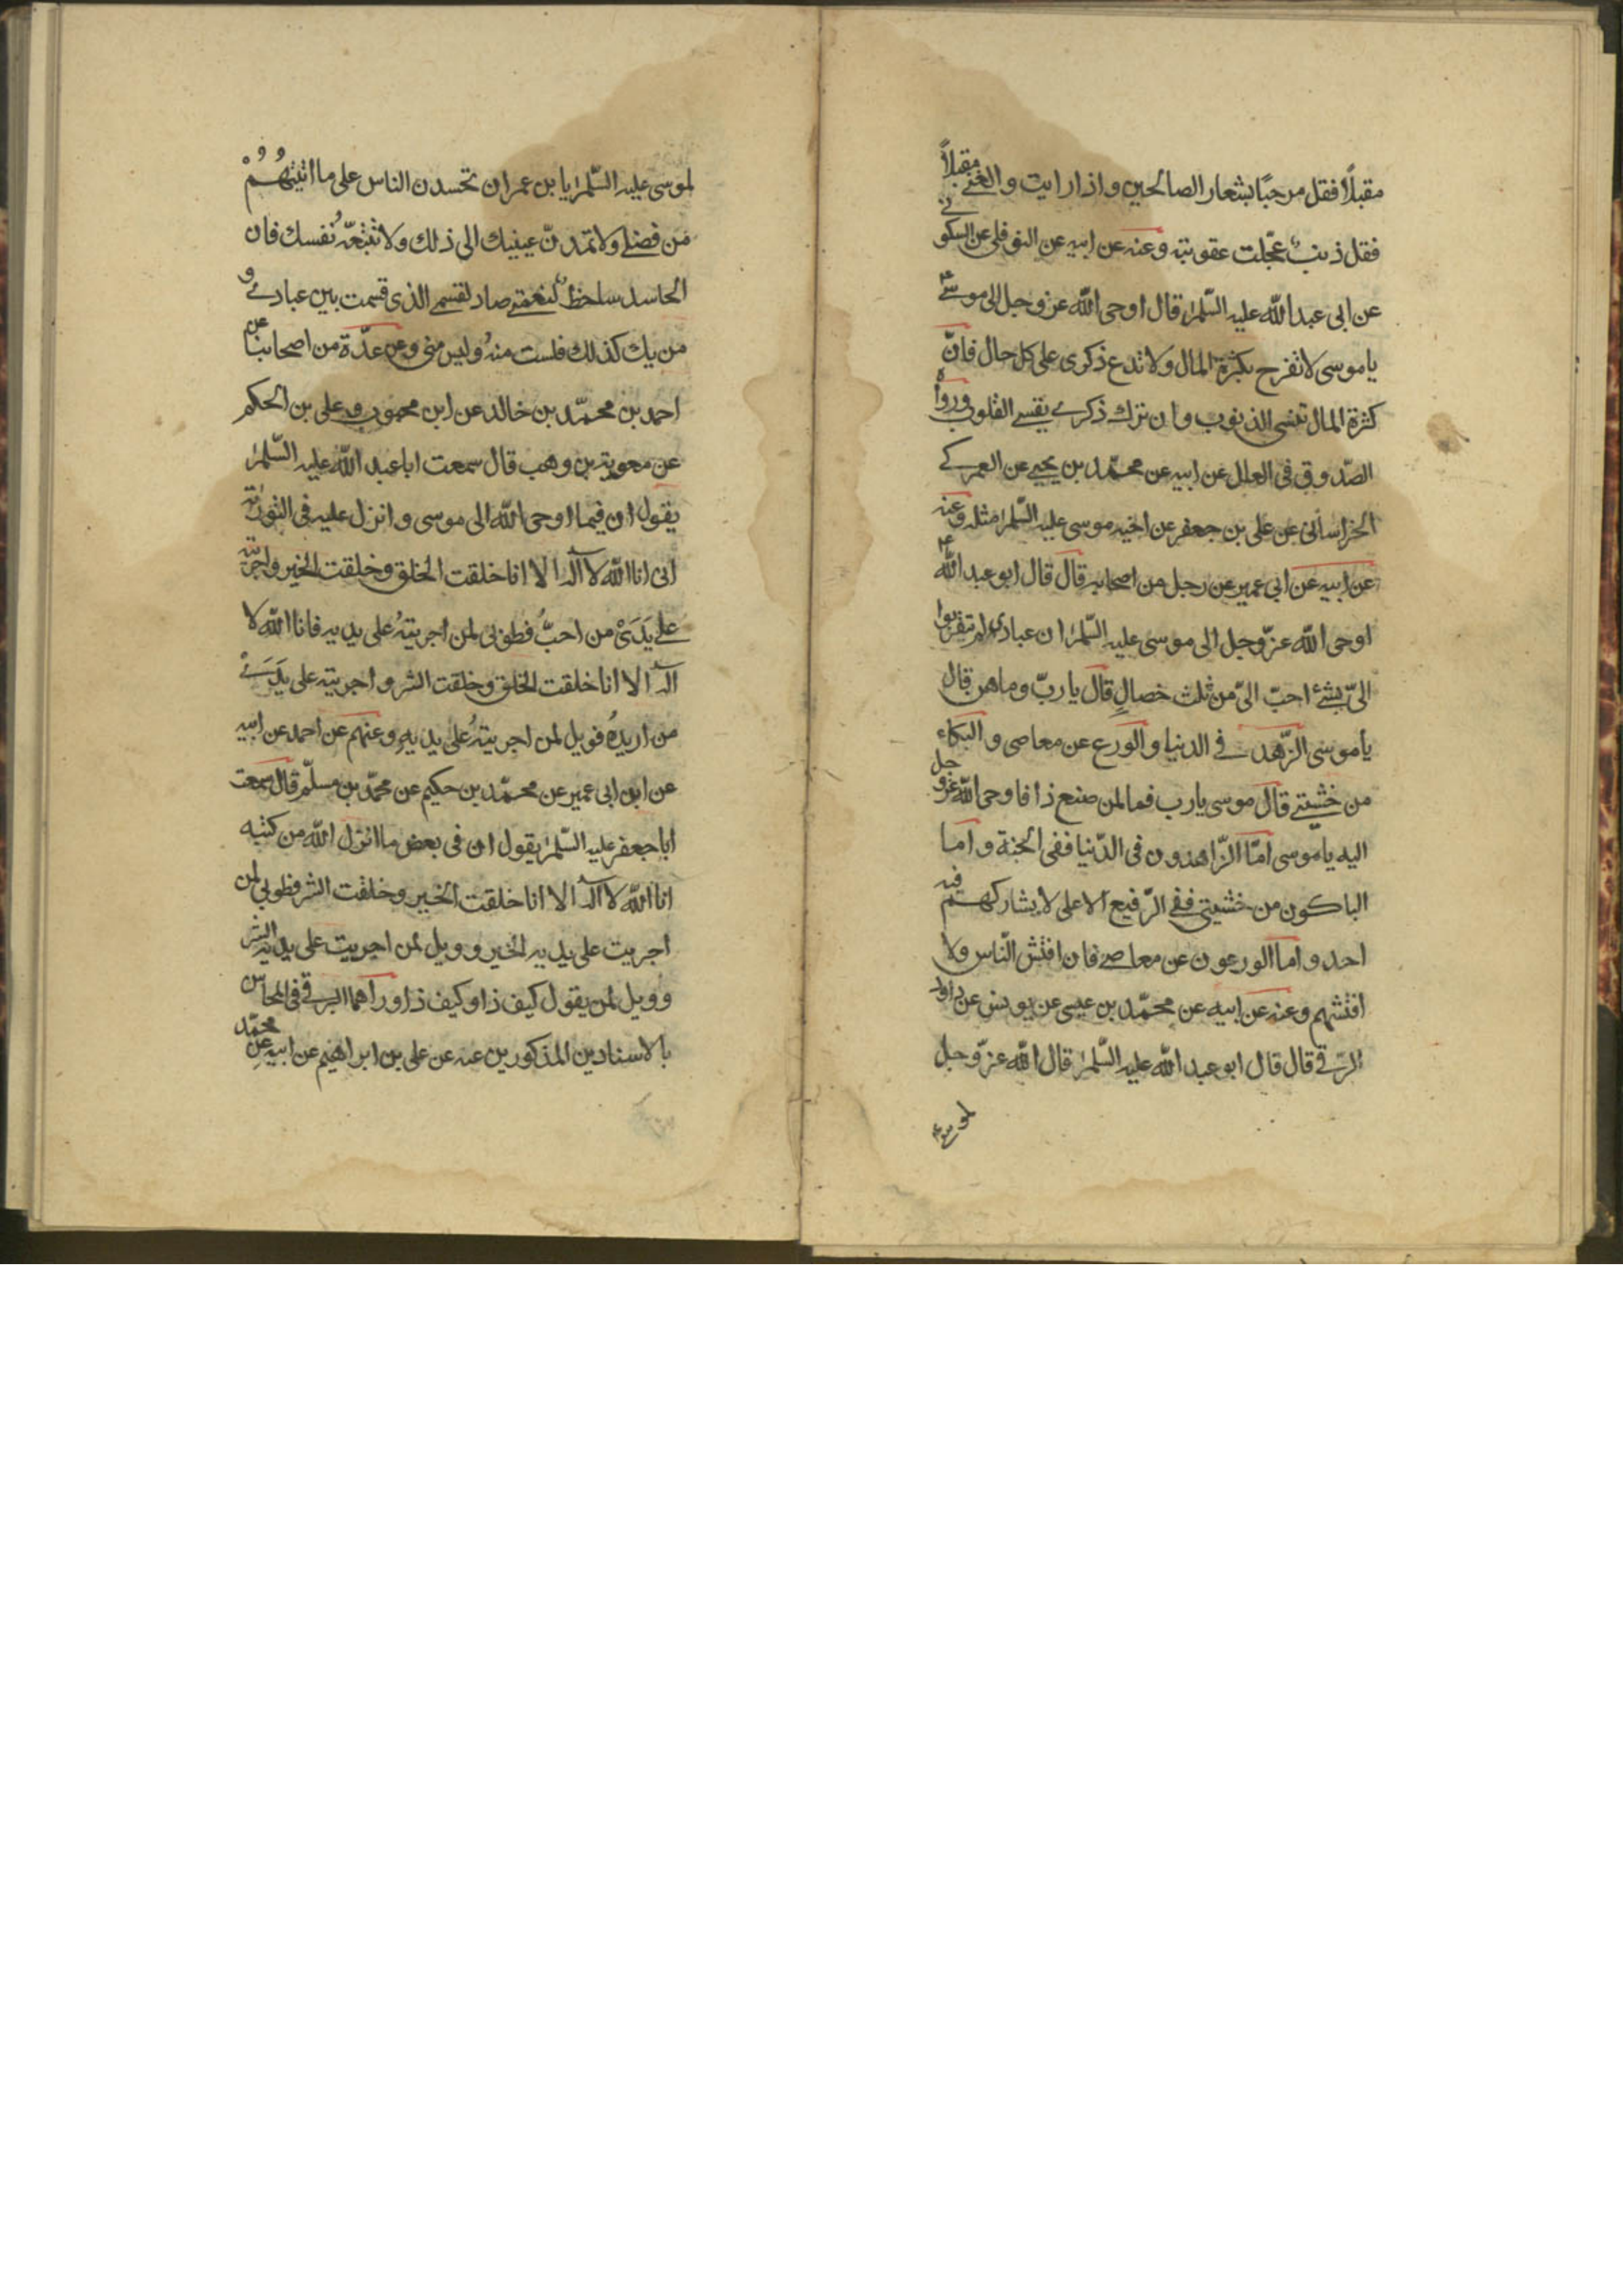 مقبلاً فقل مرحبًا بشعار الصالحين واذا رايت والغنى مقبلاً
فقل ذنبٌ عجّلت عقوبته وعنه عن ابيه عن النوفلى عن السكونى
عن ابى عبد الله عليه السّلم قال اوحى الله عز وجل الى موسى ع
يا موسى لا تفرح بكثرة المال ولا تدع ذكرى على كل حال فانّ
كثرة المال تنسى الذنوب وان ترك ذكرى يقسى القلوب ورواه
الصّدوق فى العلل عن ابيه عن محمّد بن يحيى عن العمركى
الخراسانى عن على بن جعفر عن اخيه موسى عليه السّلم مثله وعنه
عن ابيه عن ابى عمير عن رجل من اصحابه قال قال ابو عبد الله ع
اوحى الله عزّ وجل الى موسى عليه السّلم ان عبادى لم تقربوا
الىّ بشئ احبّ الىّ من ثلث خصالٍ قال يا ربّ وما هن قال
يا موسى الزّهد فى الدنيا والورع عن معاصى والبكاء
من خشيتى قال موسى يا رب فما لمن صنع ذا فاوحى الله عز وجل
اليه يا موسى امّا الزّاهدون فى الدّنيا ففى الجنة واما
الباكون من خشيتى ففى الرّفيع الاعلى لا يشاركهم فيه
احد واما الورعون عن معاصى فان افتش النّاس ولا
افتشهم وعنه عن ابيه عن محمّد بن عيسى عن يونس عن داود
الرّقى قال قال ابو عبد الله عليه السّلم قال الله عزّ وجل
لموسى ع
لموسى عليه السّلم يا بن عمران تحسدن الناس على ما اتيتهُمُ
من فضلى ولا تمدنّ عينيك الى ذلك ولا تتبعهُ نفسك فان
الحاسد ساخط لنعمتى صاد لقسمى الذى قسمت بين عبادى و
من يك كذلك فلست منهُ وليس منى وعن عدّة من اصحابنا عن
احمد بن محمّد بن خالد عن ابن محبوب وعلى بن الحكم
عن معوية بن وهب قال سمعت ابا عبد الله عليه السّلم
يقول ان فيما اوحى الله الى موسى وانزل عليه فى التورية
انى انا الله لا اله الا انا خلقت الخلق وخلقت الخير واجريته
على يَدَىْ من احبُّ فطوبى لمن اجريتهُ على يديه فانا الله لا
اله الا انا خلقت الخلق وخلقت الشر واجريته على يَدَىْ
من اريدُه فويل لمن اجريتهُ على يديهِ وعنهم عن احمد عن ابيه
عن ابن ابى عمير عن محمّد بن حكيم عن محمّد بن مسلّم قال سمعت
ابا جعفر عليه السّلم يقول ان فى بعض ما انزل الله من كتبه
انا الله لا اله الا انا خلقت الخير وخلقت الشر فطوبى لمن
اجريت على يديه الخير وويل لمن اجريت على يديه الشر
وويل لمن يقول كيف ذا وكيف ذا ورآهما البرقى فى المحاسن
بالاسنادين المذكورين عنه عن على بن ابراهيم عن ابيه عن محمّد